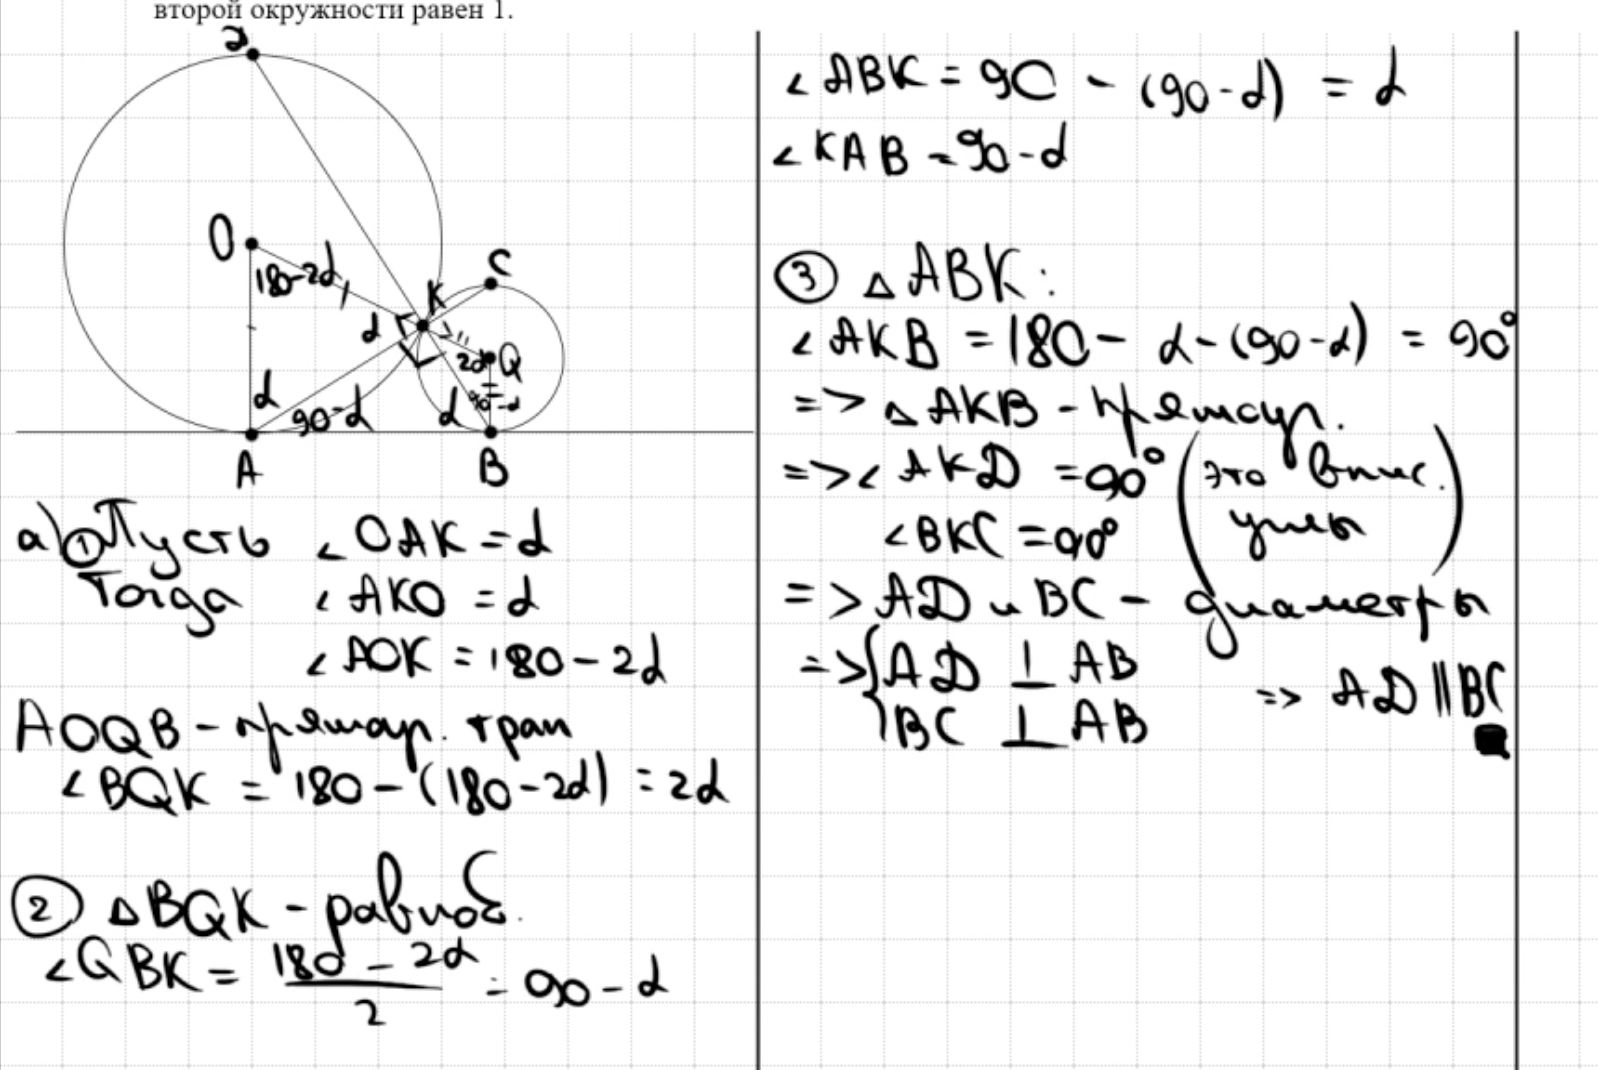 второй окружности равен 1.
D
O
180-2α
K
C
α
2α
Q
α
90-α
α
90-α
A
B
а) ① Пусть ∠OAK = α
Тогда ∠AKO = α
∠AOK = 180 - 2α
AOQB - прямоуг. трап
∠BQK = 180 - (180 - 2α) = 2α
② △BQK - равноб.
∠QBK = (180 - 2α)/2 = 90 - α
∠ABK = 90 - (90 - α) = α
∠KAB = 90 - α
③ △ABK:
∠AKB = 180 - α - (90 - α) = 90°
=> △AKB - прямоуг.
=> ∠AKD = 90° (это впис.
∠BKC = 90° углы)
=> AD и BC - диаметры
=> { AD ⊥ AB
BC ⊥ AB => AD || BC